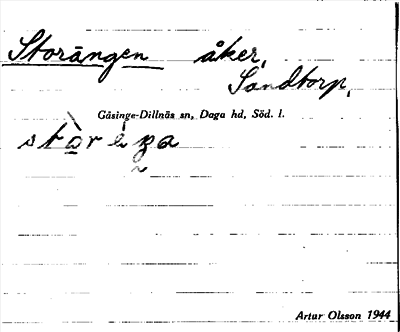 Storängen åker,
Sandtorp,
Gåsinge-Dillnäs sn, Daga hd, Söd. l.
Artur Olsson 1944